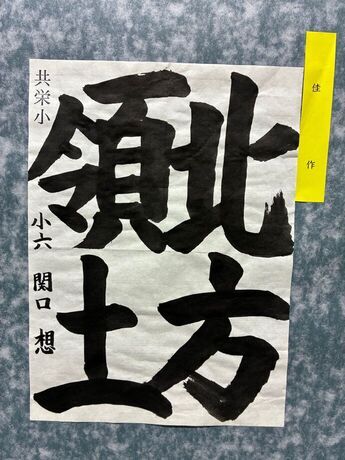 北方
領土
共栄小
小六 関口 想
佳作